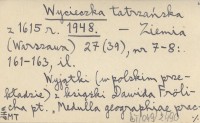 Wycieczka tatrzańska
z 1615 r. 1948. – Ziemia
(Warszawa) 27 (39), nr 7-8:
161-163, il.
Wyjątki (w polskim prze-
kładzie) z książki Dawida Fröli-
cha pt. „Medulla geographiae prac-
MT